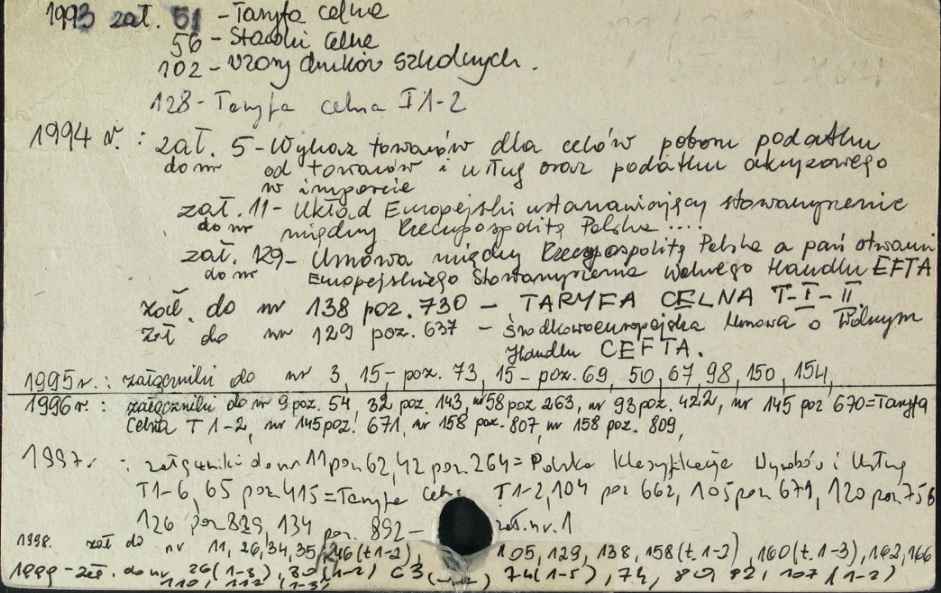 1993 zał. 51 - Taryfa celna
56 - Stawki Celne
102 - Wzory druków szkolnych.
128 - Taryfa celna T 1-2
1994 r. : zał. 5 - Wykaz towarów dla celów poboru podatku
do nr od towarów i usług oraz podatku akcyzowego
w imporcie
zał. 11 - Układ Europejski ustanawiający stowarzyszenie
do nr między Rzecząpospolitą Polską ....
zał. 129 - Umowa między Rzecząpospolitą Polską a państwami
do nr Europejskiego Stowarzyszenia Wolnego Handlu EFTA
zał. do nr 138 poz. 730 - TARYFA CELNA T-I-II.
zał do nr 129 poz. 637 - Środkowoeuropejska Umowa o Wolnym
Handlu CEFTA.
1995 r.: załączniki do nr 3, 15 - poz. 73, 15 - poz. 69, 50, 67, 98, 150, 154,
1996 r. : załączniki do nr 9 poz. 54, 32 poz. 143, nr 58 poz 263, nr 93 poz. 422, nr 145 poz 670 = Taryfa
Celna T 1-2, nr 145 poz. 671, nr 158 poz. 807, nr 158 poz. 809,
1997 r. : załączniki do nr 11 poz 62, 42 poz. 264 = Polska Klasyfikacja Wyrobów i Usług
T1-6, 65 poz 415 = Taryfa Celna T1-2, 104 poz 662, 105 poz 671, 120 poz 756
126 poz 829, 134 poz. 892 - zał. nr. 1
1998. zał do nr 11, 26, 34, 35, (t. 1-2), 105, 129, 138, 158 (t. 1-2), 160 (t. 1-3), 162, 166
1999 - zał. do nr. 26 (1-3), 30 (1-2) 63 74 (1-5), 74, 80, 92, 107 (1-2)
110, 112 (1-3)